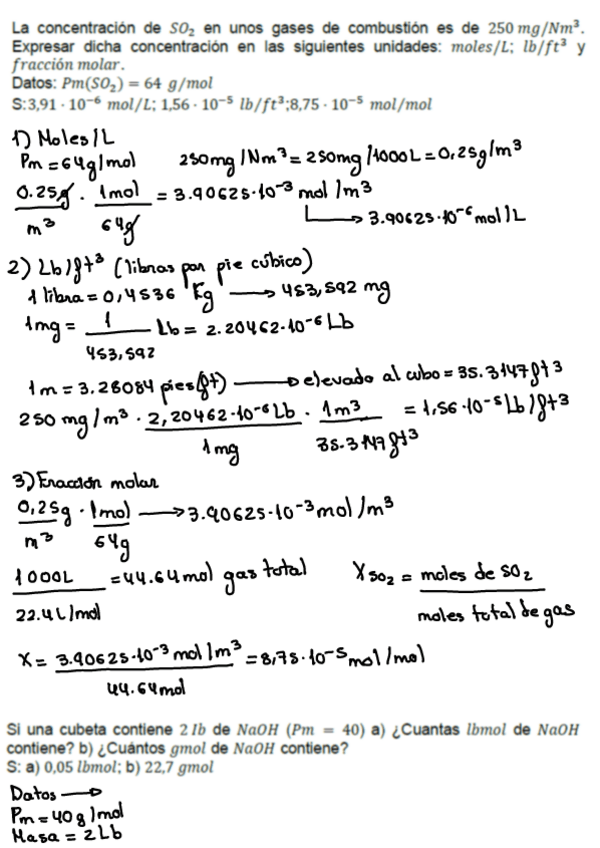 La concentración de SO₂ en unos gases de combustión es de 250 mg/Nm³.
Expresar dicha concentración en las siguientes unidades: moles/L; lb/ft³ y
fracción molar.
Datos: Pm(SO₂) = 64 g/mol
S:3,91 · 10⁻⁶ mol/L; 1,56 · 10⁻⁵ lb/ft³;8,75 · 10⁻⁵ mol/mol
1) Moles/L
Pm = 64g/mol 250mg/Nm³ = 250mg/1000L = 0,25g/m³
0.25g/m³ · 1mol/64g = 3.90625·10⁻³ mol/m³
→ 3.90625·10⁻⁶ mol/L
2) Lb/ft³ (libras por pie cúbico)
1 libra = 0,4536 Kg → 453,592 mg
1mg = 1/453,592 Lb = 2.20462·10⁻⁶ Lb
1m = 3.28084 pies(ft) → elevado al cubo = 35.3147ft3
250 mg/m³ · 2,20462·10⁻⁶ Lb/1mg · 1m³/35.3147ft³ = 1,56·10⁻⁵ Lb/ft3
3) Fracción molar
0,25g/m³ · 1mol/64g → 3.90625·10⁻³ mol/m³
1000L/22.4L/mol = 44.64mol gas total X SO₂ = moles de SO₂/moles total de gas
X = 3.90625·10⁻³ mol/m³/44.64mol = 8,75·10⁻⁵ mol/mol
Si una cubeta contiene 2 lb de NaOH (Pm = 40) a) ¿Cuantas lbmol de NaOH
contiene? b) ¿Cuántos gmol de NaOH contiene?
S: a) 0,05 lbmol; b) 22,7 gmol
Datos →
Pm = 40g/mol
Masa = 2Lb